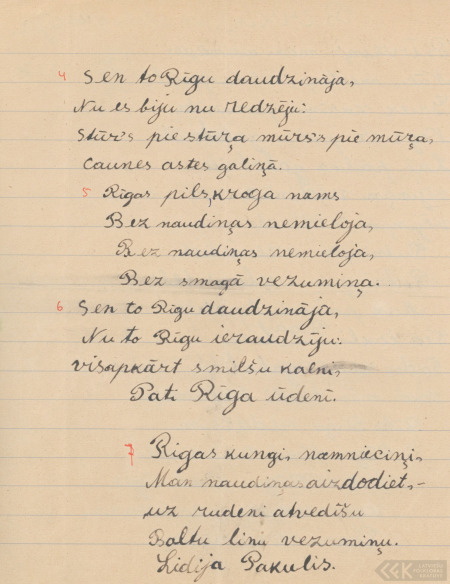 4 Sen to Rīgu daudzināja,
Nu es biju nu redzēju:
Stūr's pie stūŗa mūrs's pie mūŗa,
Caunes astes galiņā.
5 Rīgas pils, kroga nams
Bez naudiņas nemieloja,
Bez naudiņas nemieloja,
Bez smagā vezumiņa.
6 Sen to Rīgu daudzināja,
Nu to Rīgu ieraudzīju:
visapkārt smilšu kalni,
Pati Rīga ūdenī.
7 Rigas kungi, namnieciņi,
Man naudiņas aizdodiet,-
uz rudeni atvedīšu
Baltu linu vezumiņu.
Lidija Pakulis.
LATVIEŠU
FOLKLORAS
KRĀTUVE